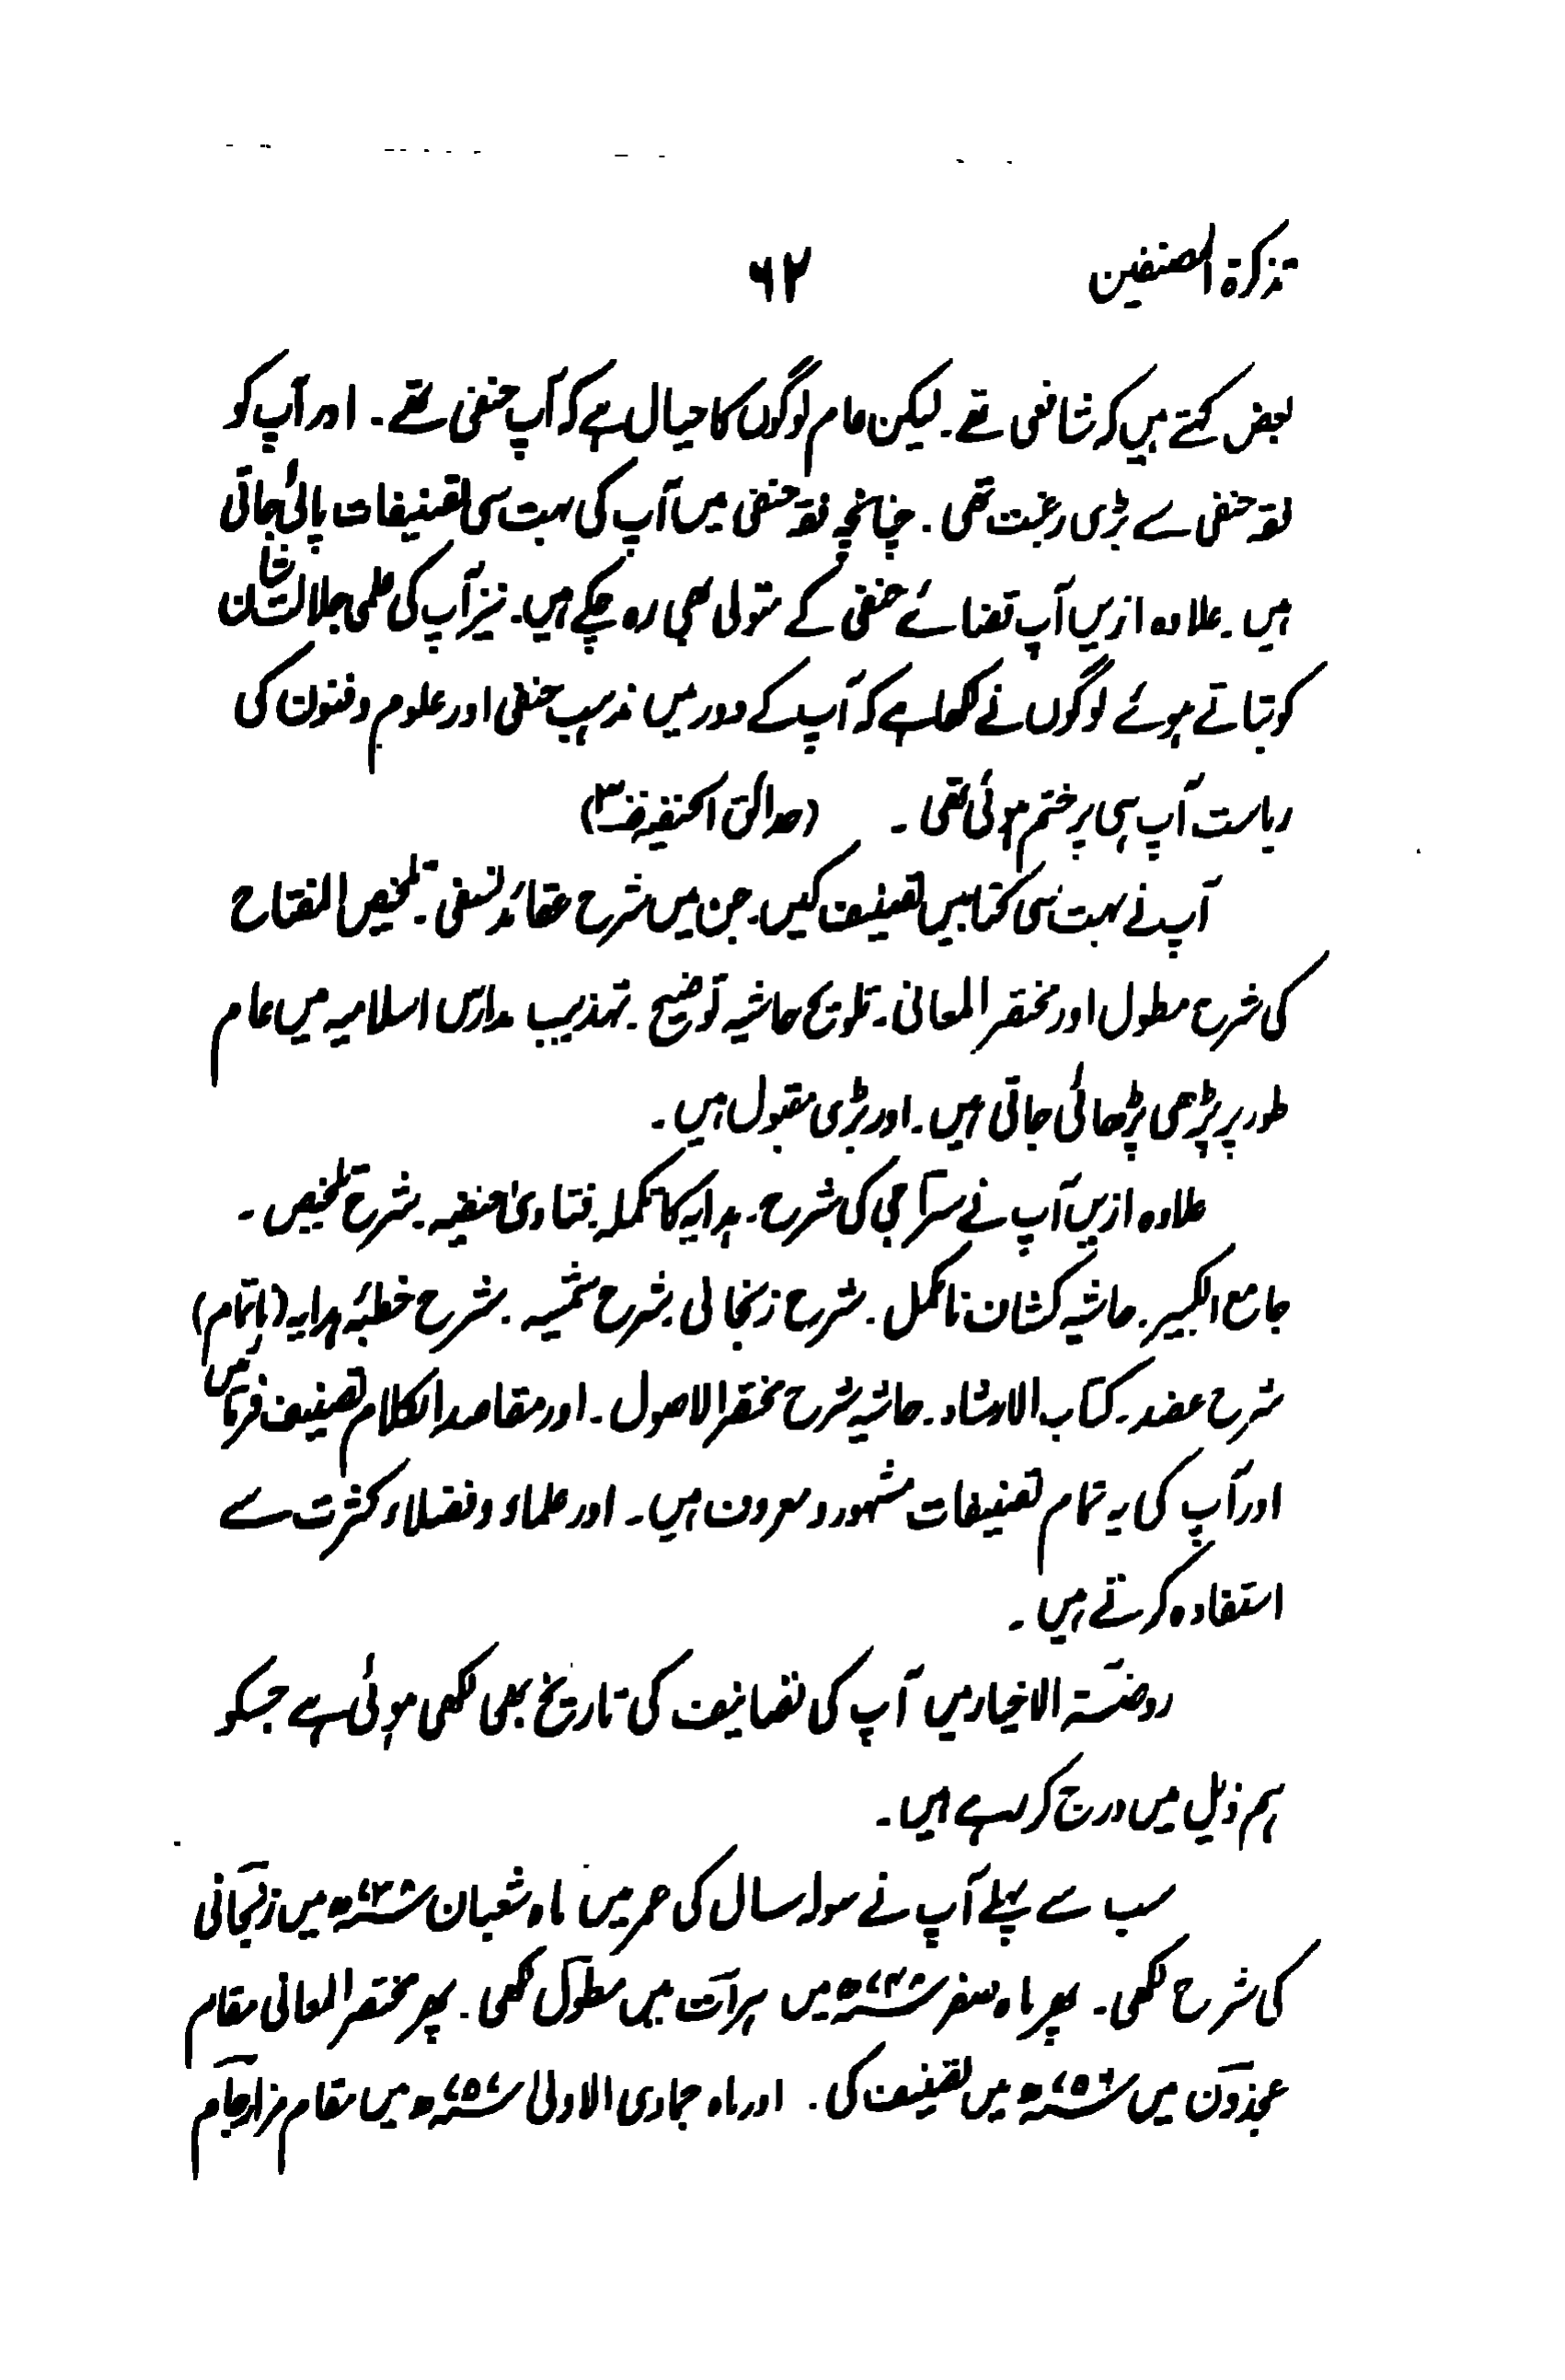 تذکرۃ المصنفین
۶۲
بعض کہتے ہیں کہ شافعی تھے۔ لیکن عام لوگوں کا خیال ہے کہ آپ حنفی تھے۔ اور آپ کو
فقہ حنفی سے بڑی رغبت تھی۔ چنانچہ فقہ حنفی میں آپ کی بہت سی تصنیفات پائی جاتی
ہیں۔ علاوہ ازیں آپ قضائے حنفی کے متولی بھی رہ چکے ہیں۔ نیز آپ کی علمی جلالت شان
کو بتاتے ہوئے لوگوں نے لکھا ہے کہ آپ کے دور میں مذہب حنفی اور علوم و فنون کی
ریاست آپ ہی پر ختم ہوئی تھی۔ (حدائق الحنفیہ)
آپ نے بہت سی کتابیں تصنیف کیں۔ جن میں شرح عقائد نسفی۔ تلخیص المفتاح
کی شرح مطول اور مختصر المعانی۔ تلویح حاشیہ توضیح۔ تہذیب مدارس اسلامیہ میں عام
طور پر پڑھی پڑھائی جاتی ہیں۔ اور بڑی مقبول ہیں۔
علاوہ ازیں آپ نے سراجی کی شرح۔ ہدایہ کا تکملہ۔ فتاویٰ حنفیہ۔ شرح تلخیص۔
جامع الکبیر۔ حاشیہ کشاف نامکمل۔ شرح زنجانی۔ شرح شمسیہ۔ شرح خطبۂ ہدایہ (ناتمام)
شرح عضد۔ کتاب الارشاد۔ حاشیہ شرح مختصر الاصول۔ اور مقاصد الکلام تصنیف فرمائیں
اور آپ کی یہ تمام تصنیفات مشہور و معروف ہیں۔ اور علماء و فضلاء کثرت سے
استفادہ کرتے ہیں۔
روضۃ الاخیار میں آپ کی تصانیف کی تاریخ بھی لکھی ہوئی ہے جسکو
ہم ذیل میں درج کر رہے ہیں۔
سب سے پہلے آپ نے سولہ سال کی عمر میں ماہ شعبان ۷۳۸ھ میں زنجانی
کی شرح لکھی۔ پھر ماہ صفر ۷۴۸ھ میں ہرات میں مطول لکھی۔ پھر مختصر المعانی مقام
غجدون میں ۷۵۶ھ میں تصنیف کی۔ اور ماہ جمادی الاولیٰ ۷۵۷ھ میں مقام مزار جام